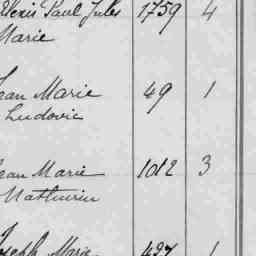 Alexis Paul Jules 1759 4
Marie
Jean Marie 49 1
Ludovic
Jean Marie 1012 3
Mathurin
Joseph Marie 427 1